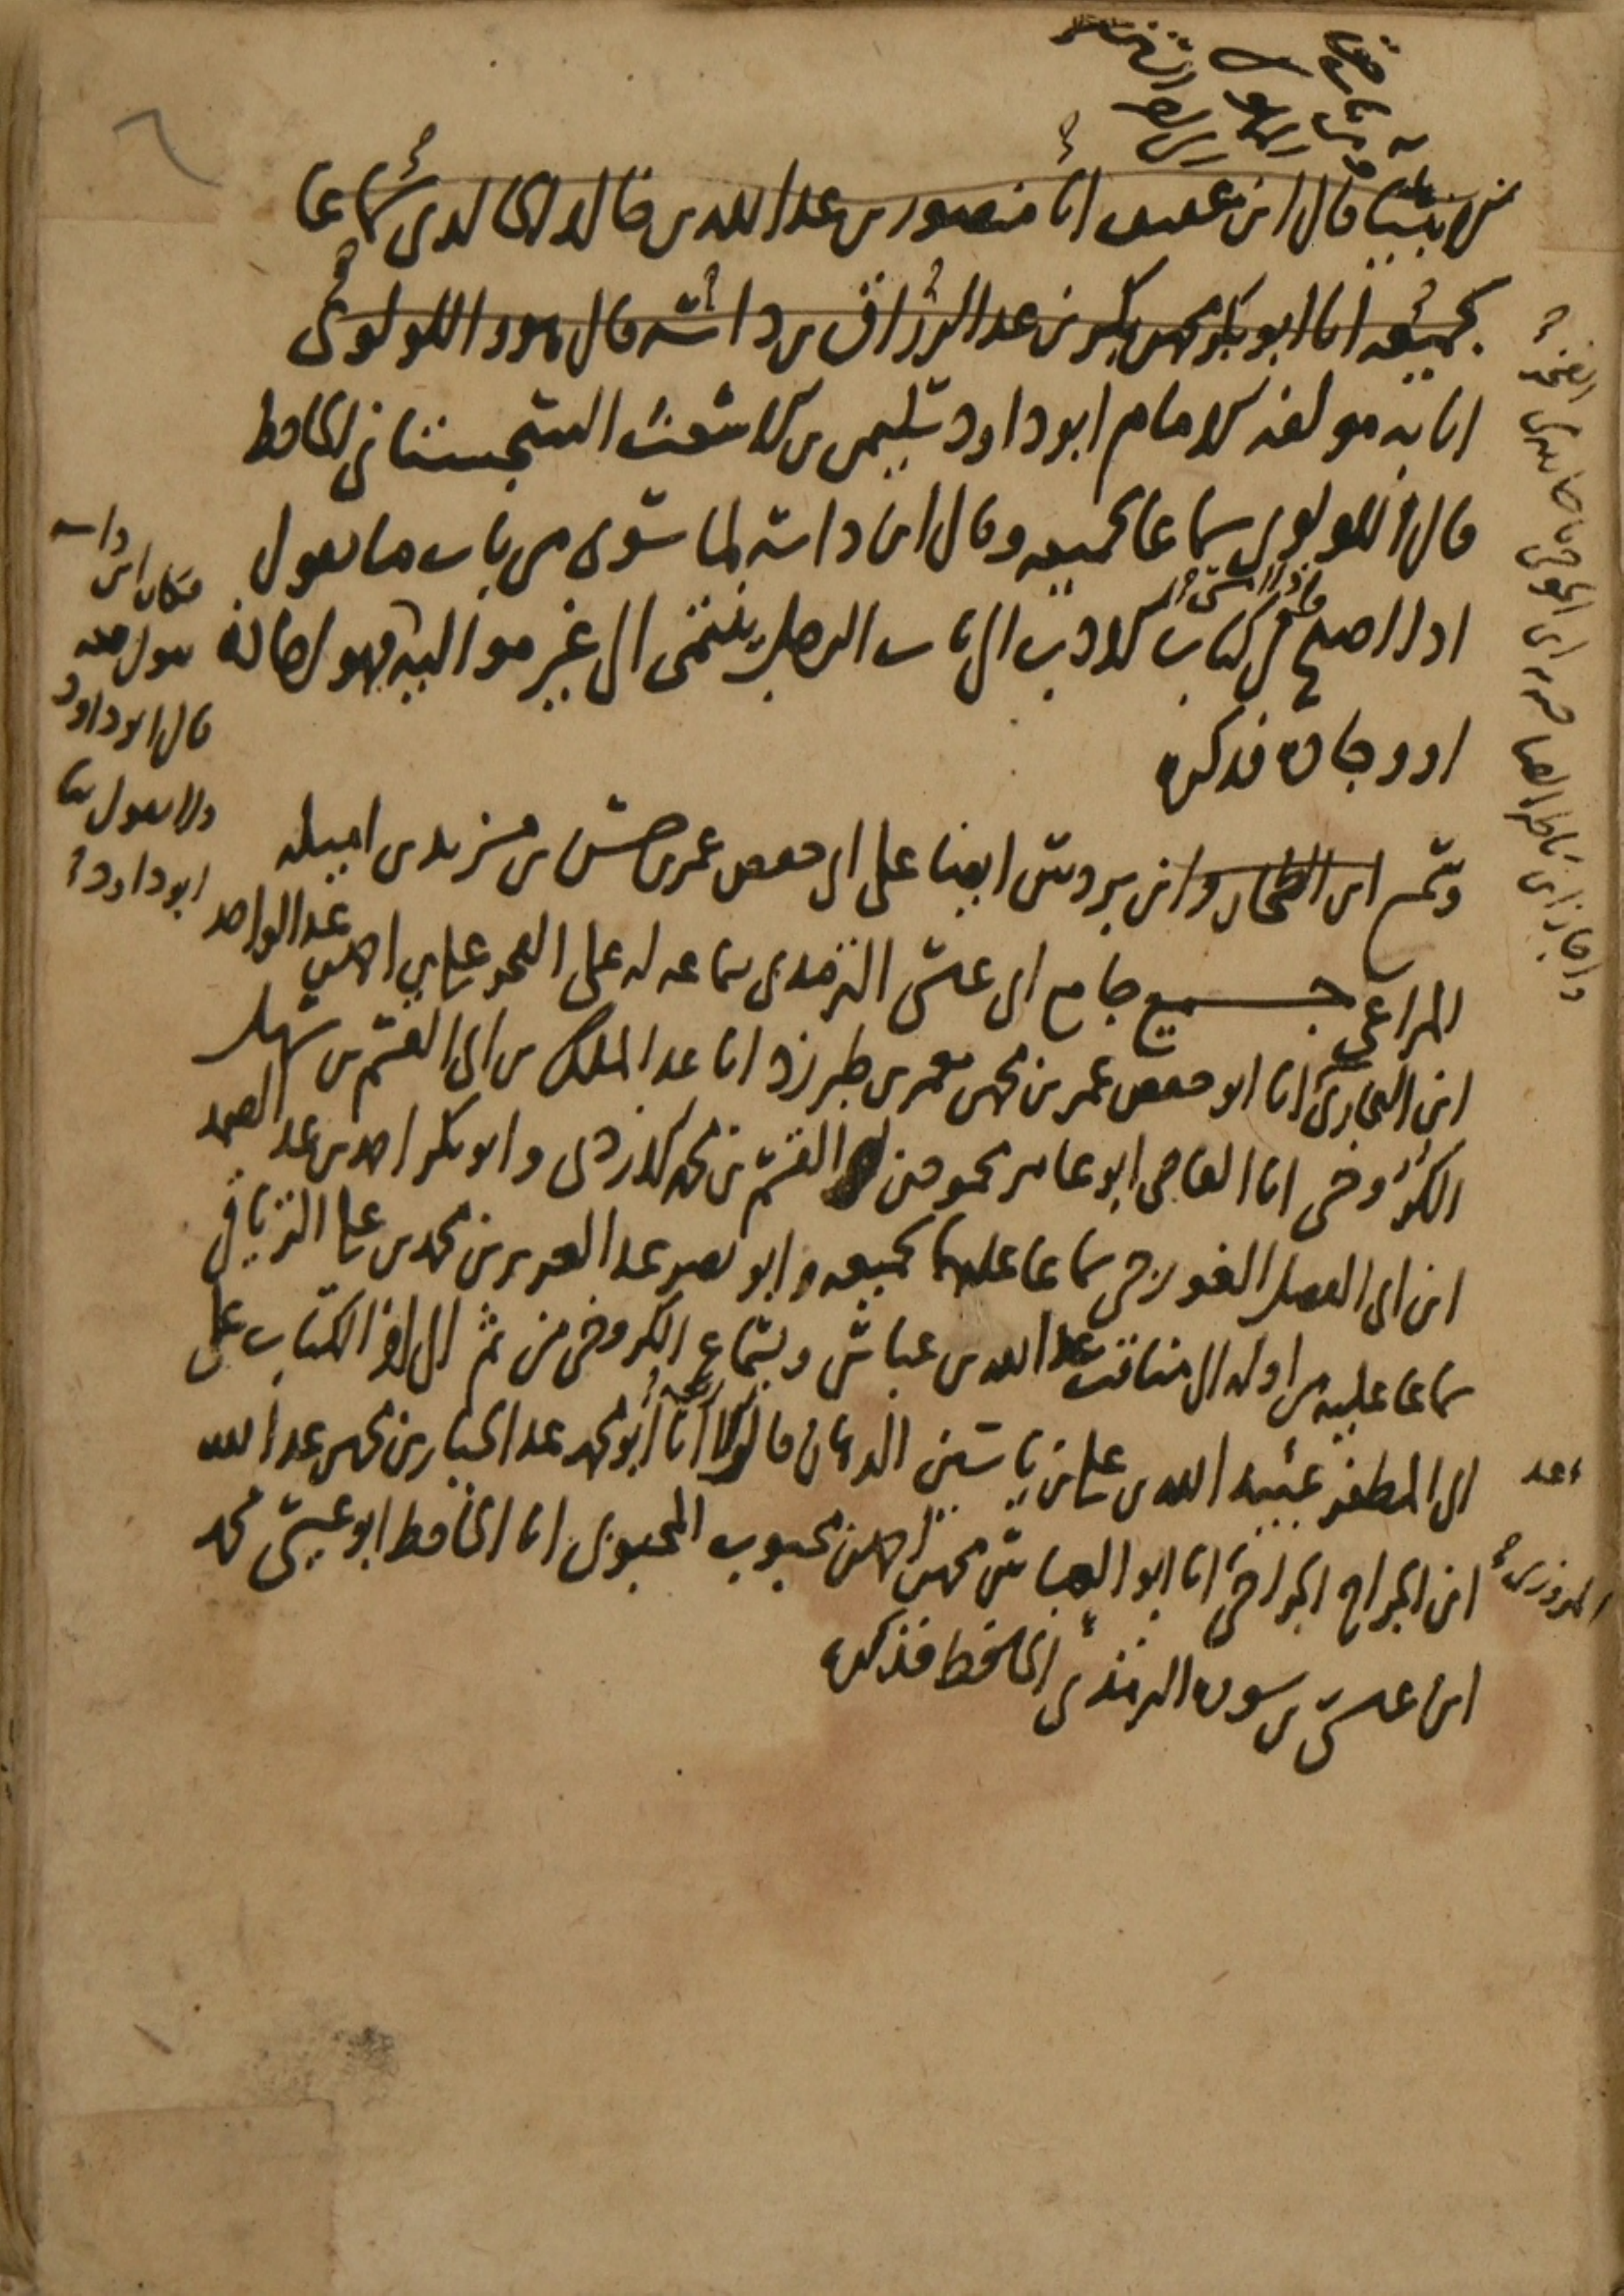 قال ابن عبيد انا منصور بن عبد الله بن خالد الخالدي سماعا
بجميعه انا ابو بكر محمد بن بكر بن عبد الرزاق بن داسه قال هو واللولوي
انا به مولفه الامام ابو داود سليمن بن الاشعث السجستاني الحافظ
قال اللولوي سماعا لجميعه وقال ابن داسه لما سوى من باب ما يقول
اذا اصبح من كتاب الادب الى باب الرجل ينتمي الى غير مواليه فهو اجازة
او وجادة فذكره
وسمع ابن الطحان وابن بردس ايضا على ابي حفص عمر بن حسن بن مزيد بن اميله
المراغي جميع جامع ابي عيسى الترمذي بسماعه له على الفخر علي بن احمد بن عبد الواحد
ابن البخاري انا ابو حفص عمر بن محمد بن معمر بن طبرزد انا عبد الملك بن ابي القسم بن سهل
الكروخي انا القاضي ابو عامر محمود بن القسم بن محمد الازدي وابو بكر احمد بن عبد الصمد
ابن ابي الفضل الغورجي سماعا عليهما بجميعه وابو نصر عبد العزيز بن محمد بن علي الترياقي
سماعا عليه من اوله الى مناقب عبد الله بن عباس وبسماع الكروخي من ثم الى اخر الكتاب على
ابي المظفر عبيد الله بن علي بن ياسين الدهان قالوا انا ابو محمد عبد الجبار بن محمد بن عبد الله
ابن الجراح الجراحي انا ابو العباس محمد بن احمد بن محبوب المحبوبي انا الحافظ ابو عيسى محمد
ابن عيسى بن سورة الترمذي الحافظ فذكره
فكان ابن داسه
يقول فيه
قال ابو داود
ولا يقول ثنا
ابو داود
المروزي